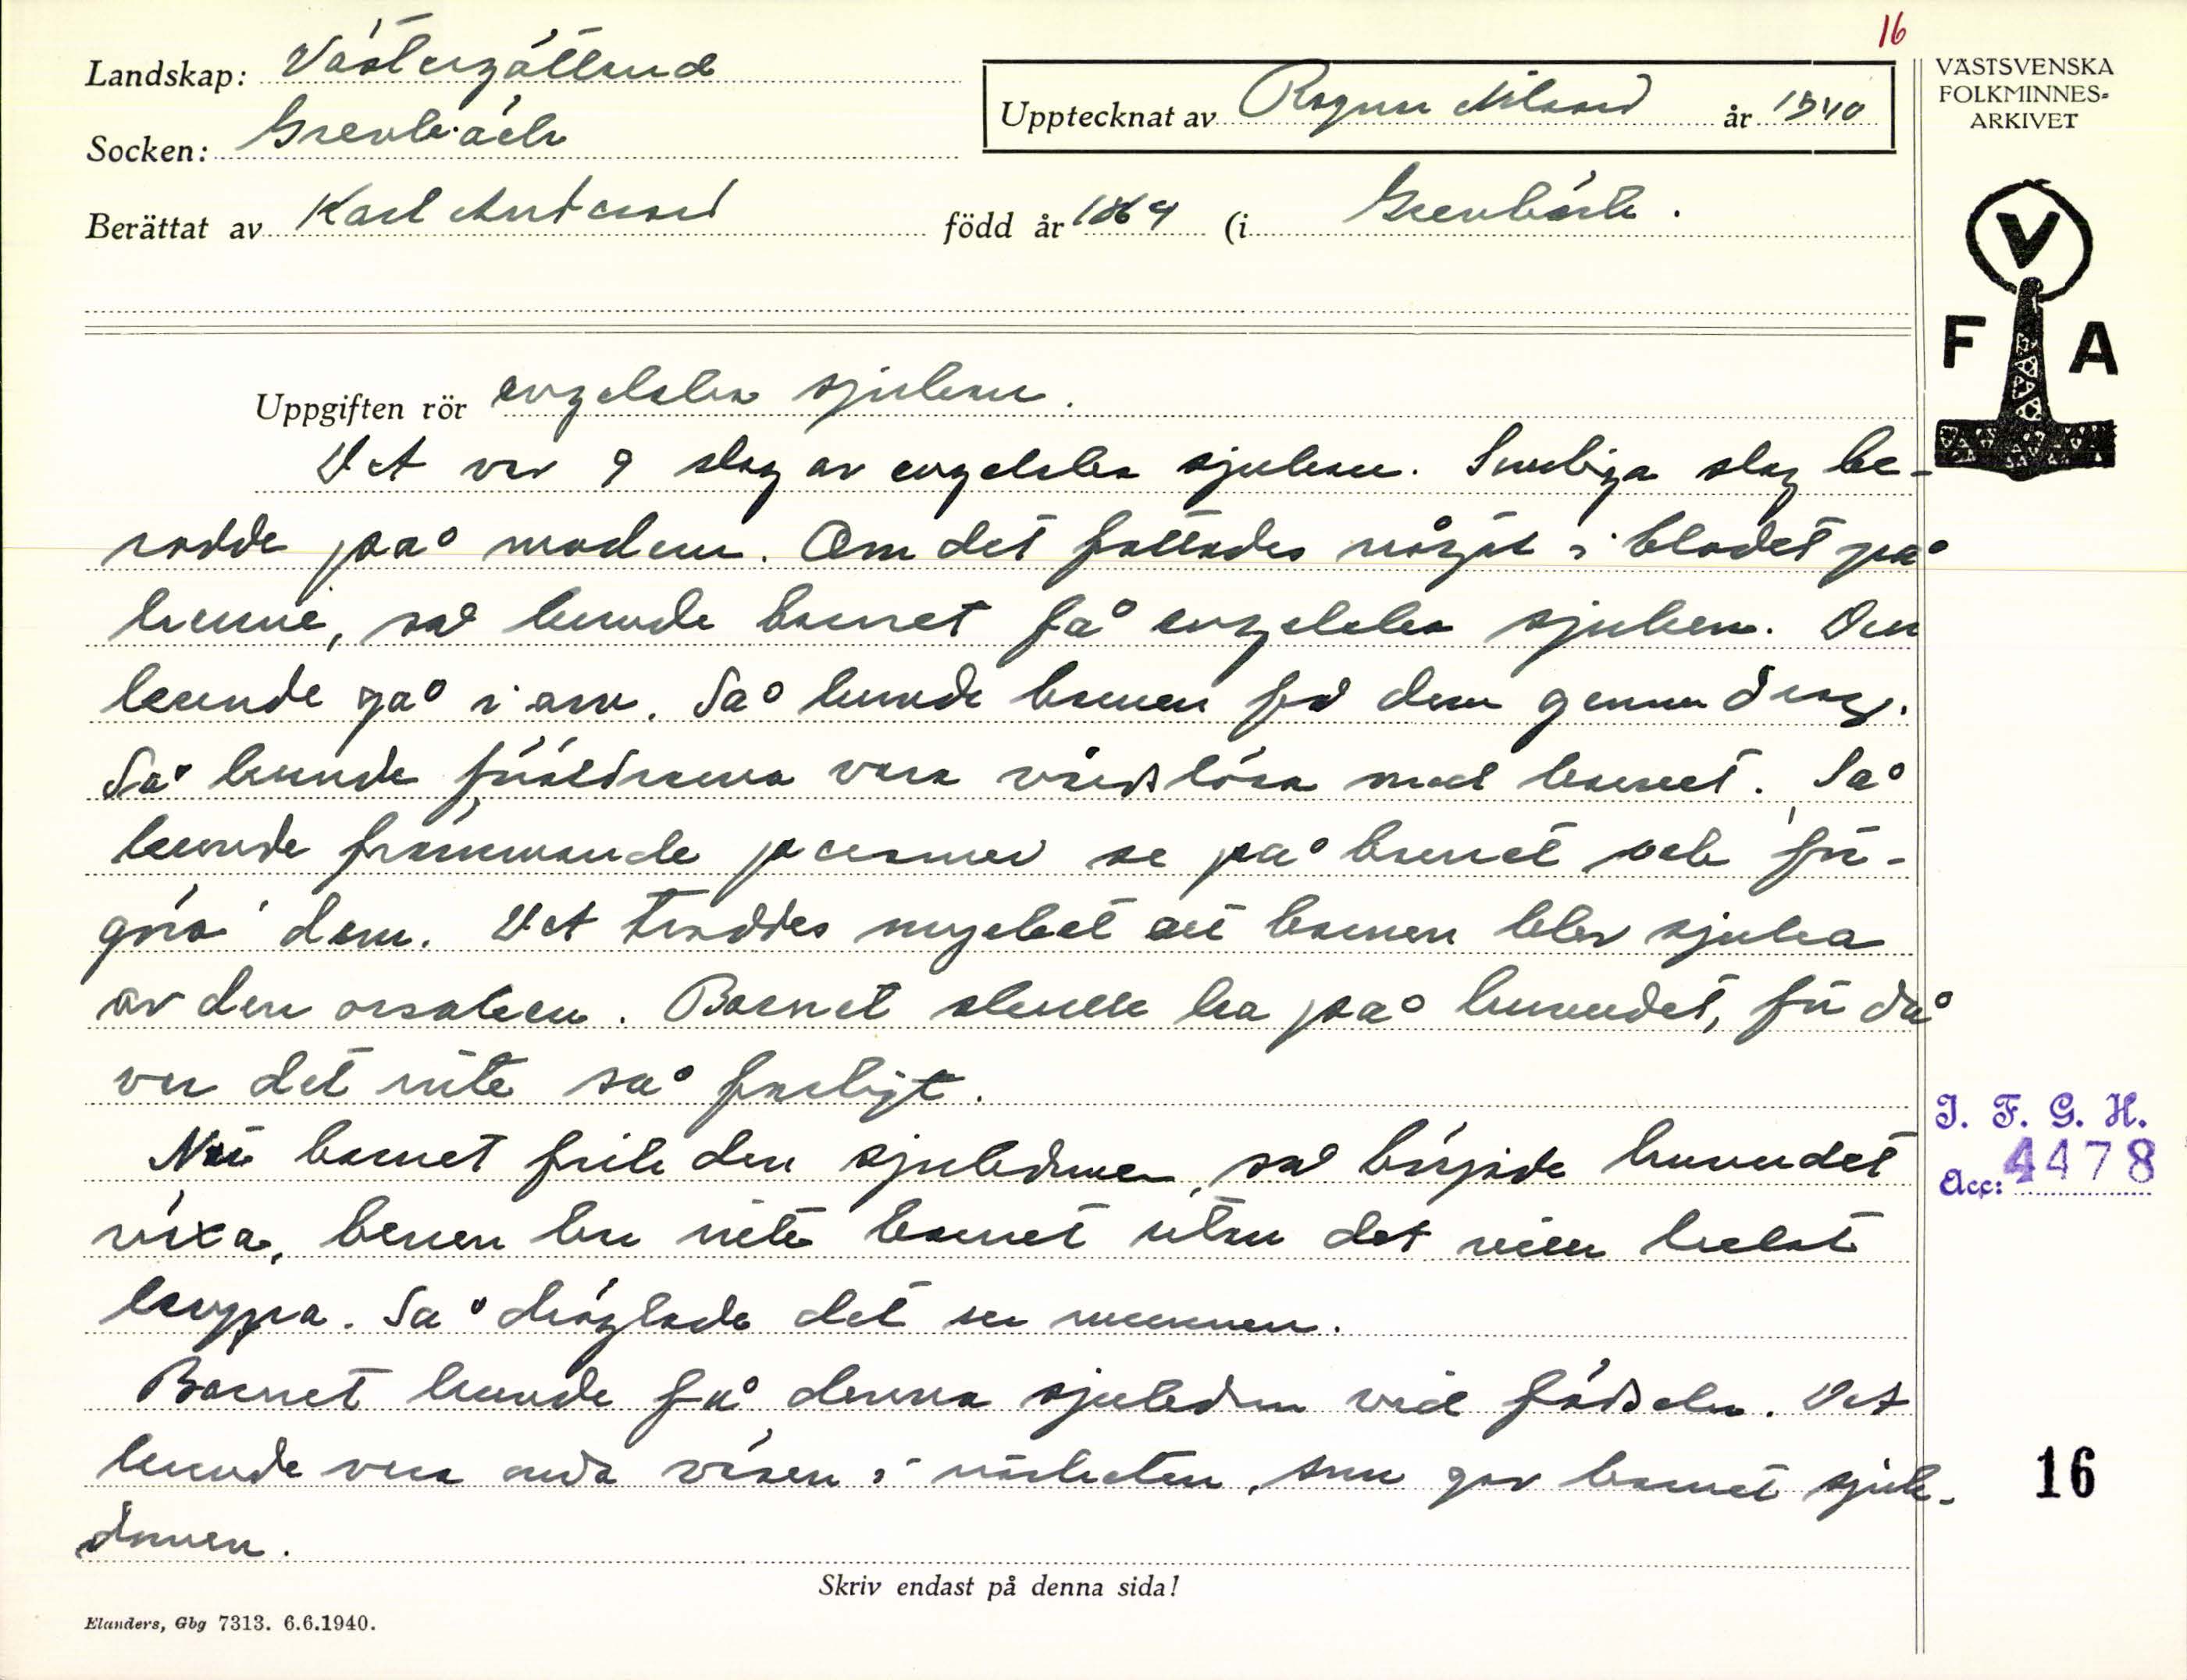 16
Landskap: Västergötland
Socken: Grevbäck
Upptecknat av Ragnar Nilsson år 1940
Berättat av Karl Andersson född år 1864 (i Grevbäck.
VÄSTSVENSKA
FOLKMINNES-
ARKIVET
V
F A
Uppgiften rör engelska sjukan.
Det var 9 slag av engelska sjukan. Somliga slag be-
rodde på modern. Om det fattades något i blodet på
henne, så kunde barnet få engelska sjukan. Den
kunde gå i arv. Så kunde barnen få dem genom drag.
Så kunde föräldrarna vara vårdslösa med barnet. Så
kunde främmande personer se på barnet och för-
göra dem. Det troddes mycket att barnen blev sjuka
av den orsaken. Barnet skulle ha på huvudet, för då
var det inte så farligt.
När barnet fick den sjukdomen, så började huvudet
växa, benen bar inte barnet utan det ville helst
krypa. Så dräglade det ur munnen.
Barnet kunde få denna sjukdom vid födseln. Det
kunde vara onda väsen i närheten, som gav barnet sjuk-
domen.
I. F. G. H.
Acc: 4478
16
Skriv endast på denna sida!
Elanders, Gbg 7313. 6.6.1940.